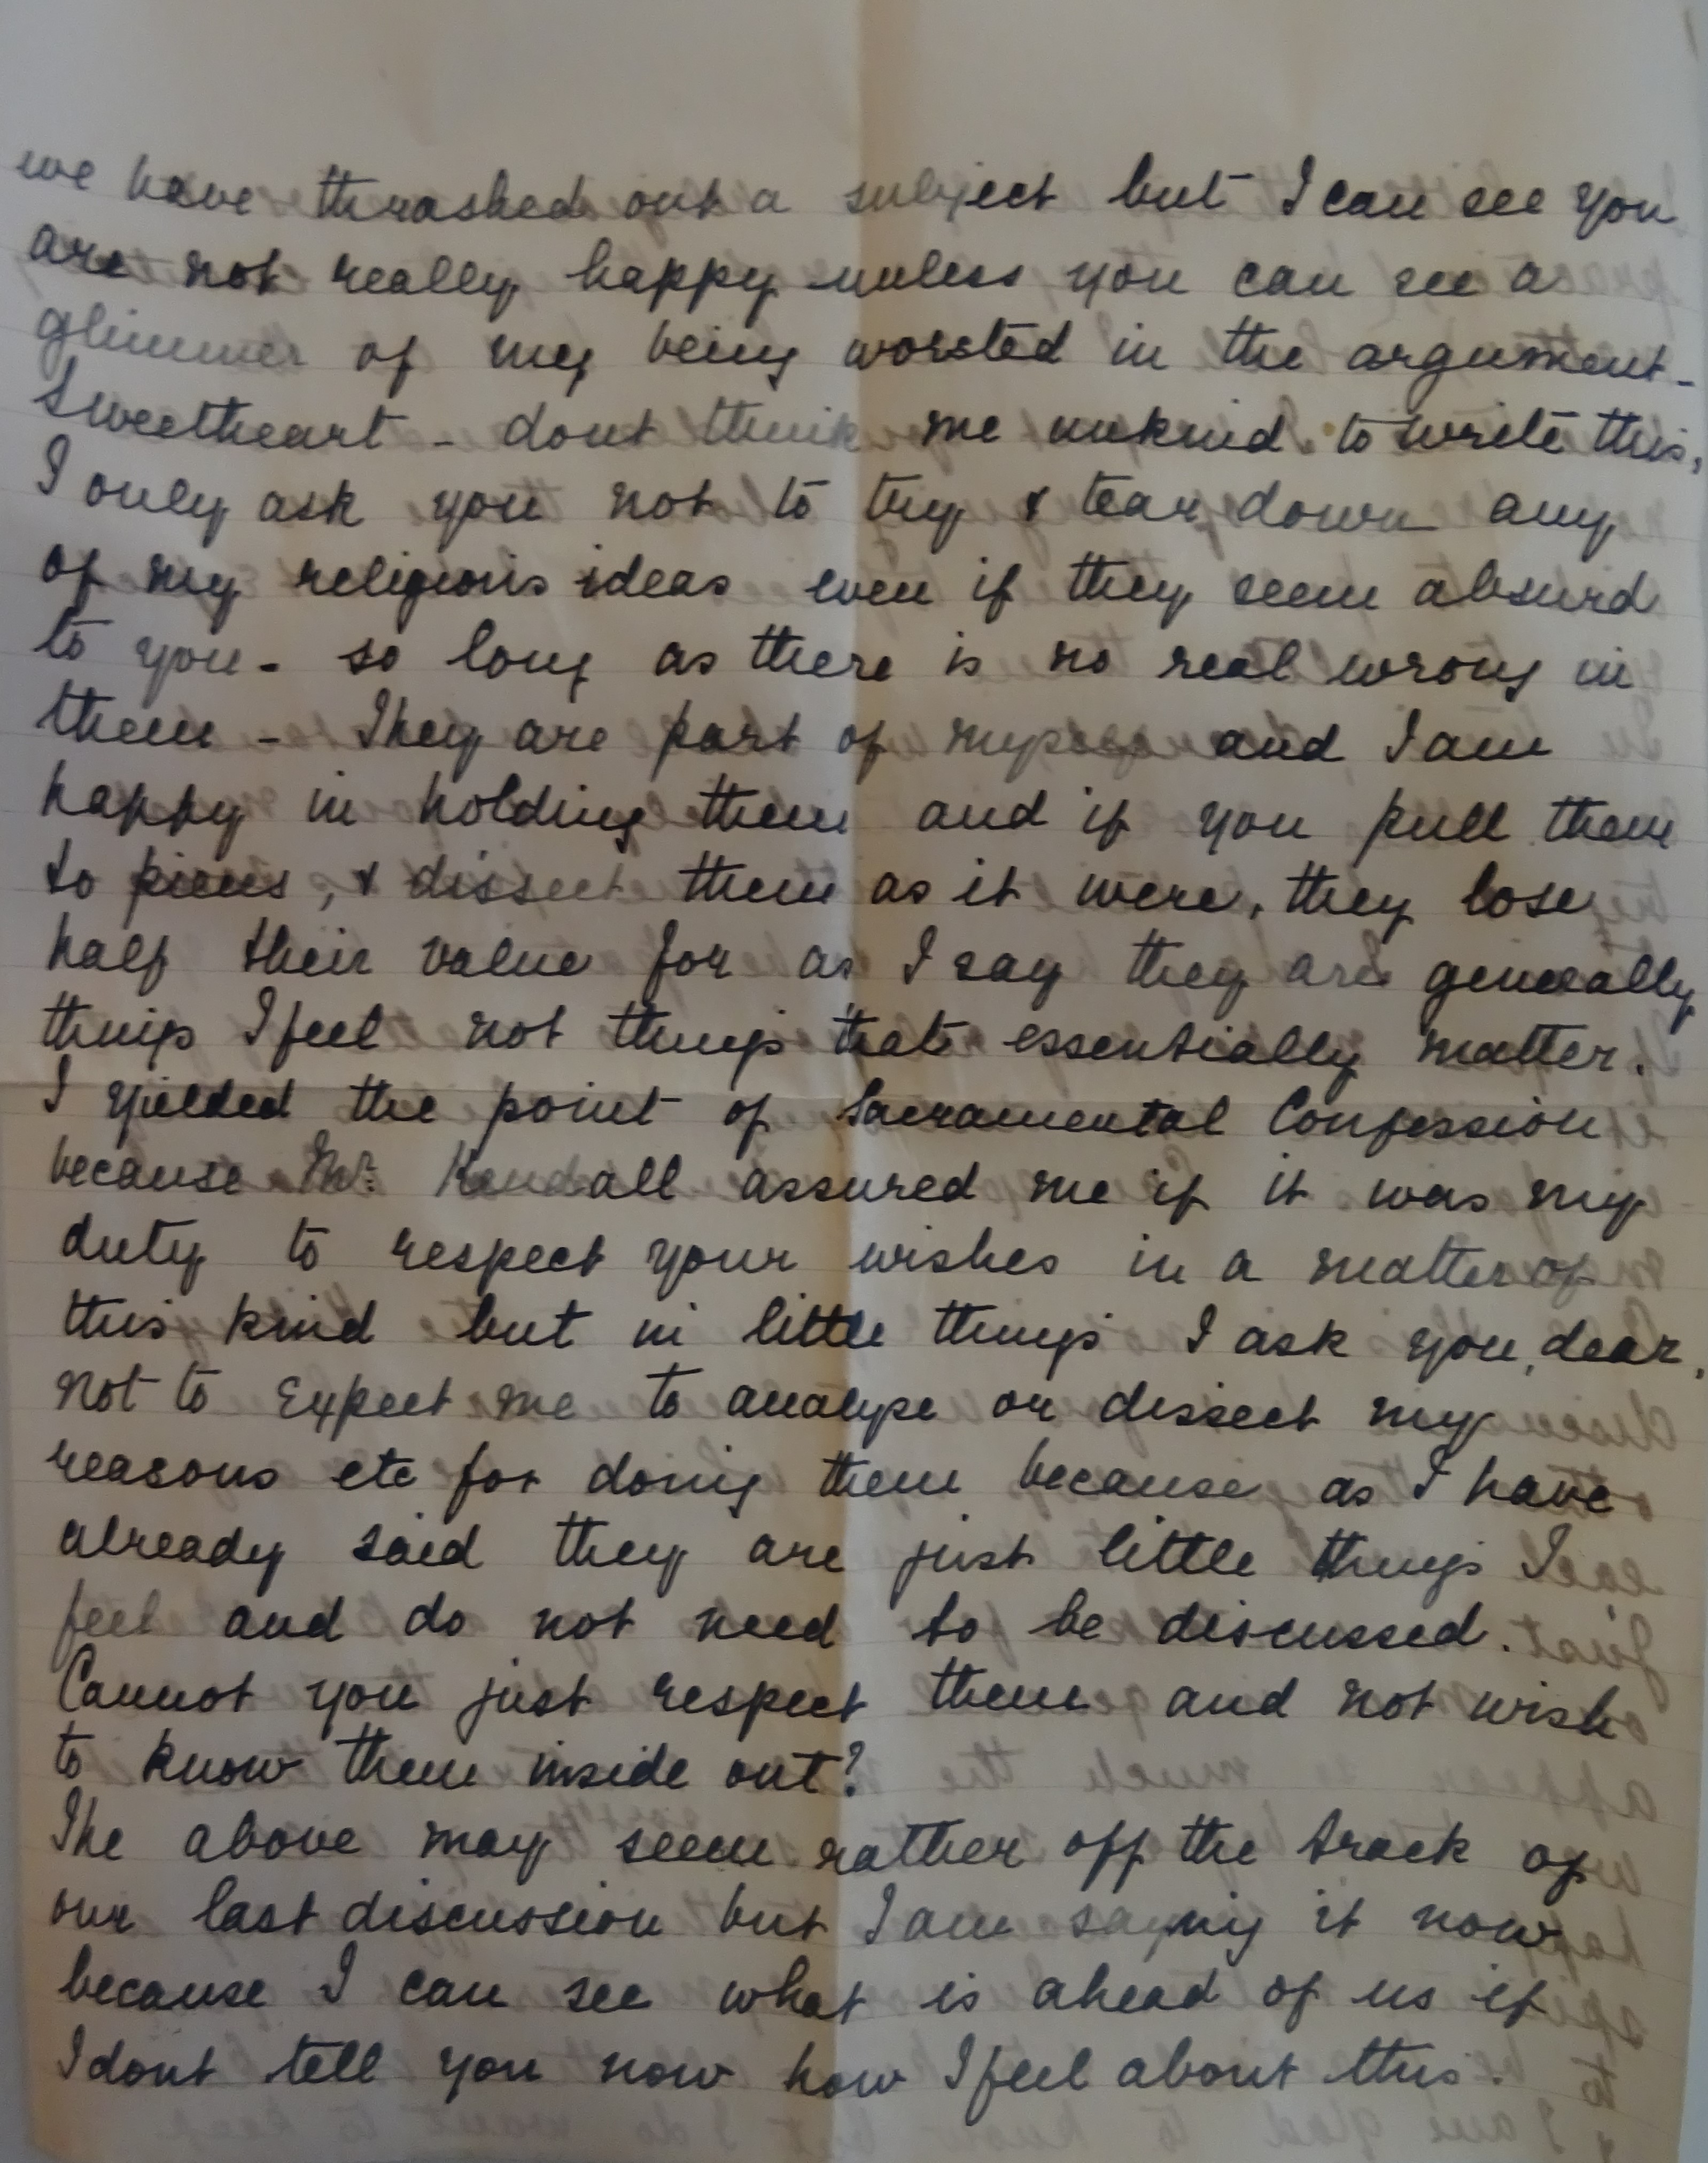 we have thrashed out a subject but I can see you
are not really happy unless you can see a
glimmer of my being worsted in the argument -
Sweetheart - dont think me unkind to write this,
I only ask you not to try & tear down any
of my religious ideas even if they seem absurd
to you - so long as there is no real wrong in
them - They are part of myself and I am
happy in holding them and if you pull them
to pieces, & dissect them as it were, they lose
half their value for as I say they are generally
things I feel not things that essentially matter.
I yielded the point of Sacramental Confession
because Mr. Kendall assured me if it was my
duty to respect your wishes in a matter of
this kind but in little things I ask you, dear,
not to expect me to analyse or dissect my
reasons etc for doing them because as I have
already said they are just little things I
feel and do not need to be discussed.
Cannot you just respect them and not wish
to know them inside out?
The above may seem rather off the track of
our last discussion but I am saying it now
because I can see what is ahead of us if
I dont tell you now how I feel about this.